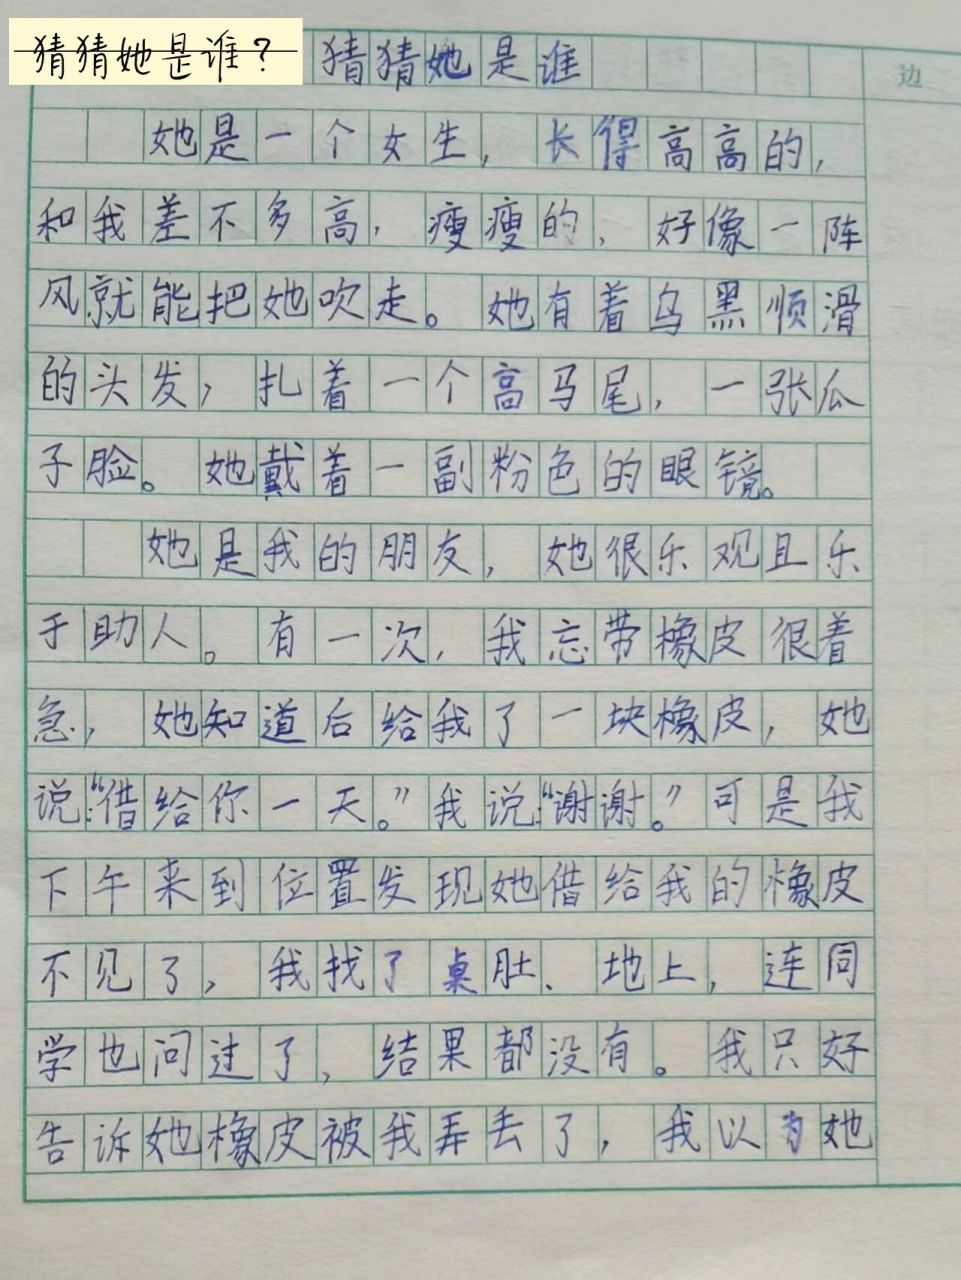 猜猜她是谁？ 猜猜她是谁
边
她是一个女生，长得高高的，
和我差不多高，瘦瘦的，好像一阵
风就能把她吹走。她有着乌黑顺滑
的头发，扎着一个高马尾，一张瓜
子脸。她戴着一副粉色的眼镜。
她是我的朋友，她很乐观且乐
于助人。有一次，我忘带橡皮很着
急，她知道后给我了一块橡皮，她
说：“借给你一天。”我说：“谢谢。”可是我
下午来到位置发现她借给我的橡皮
不见了，我找了桌肚、地上，连同
学也问过了，结果都没有。我只好
告诉她橡皮被我弄丢了，我以为她